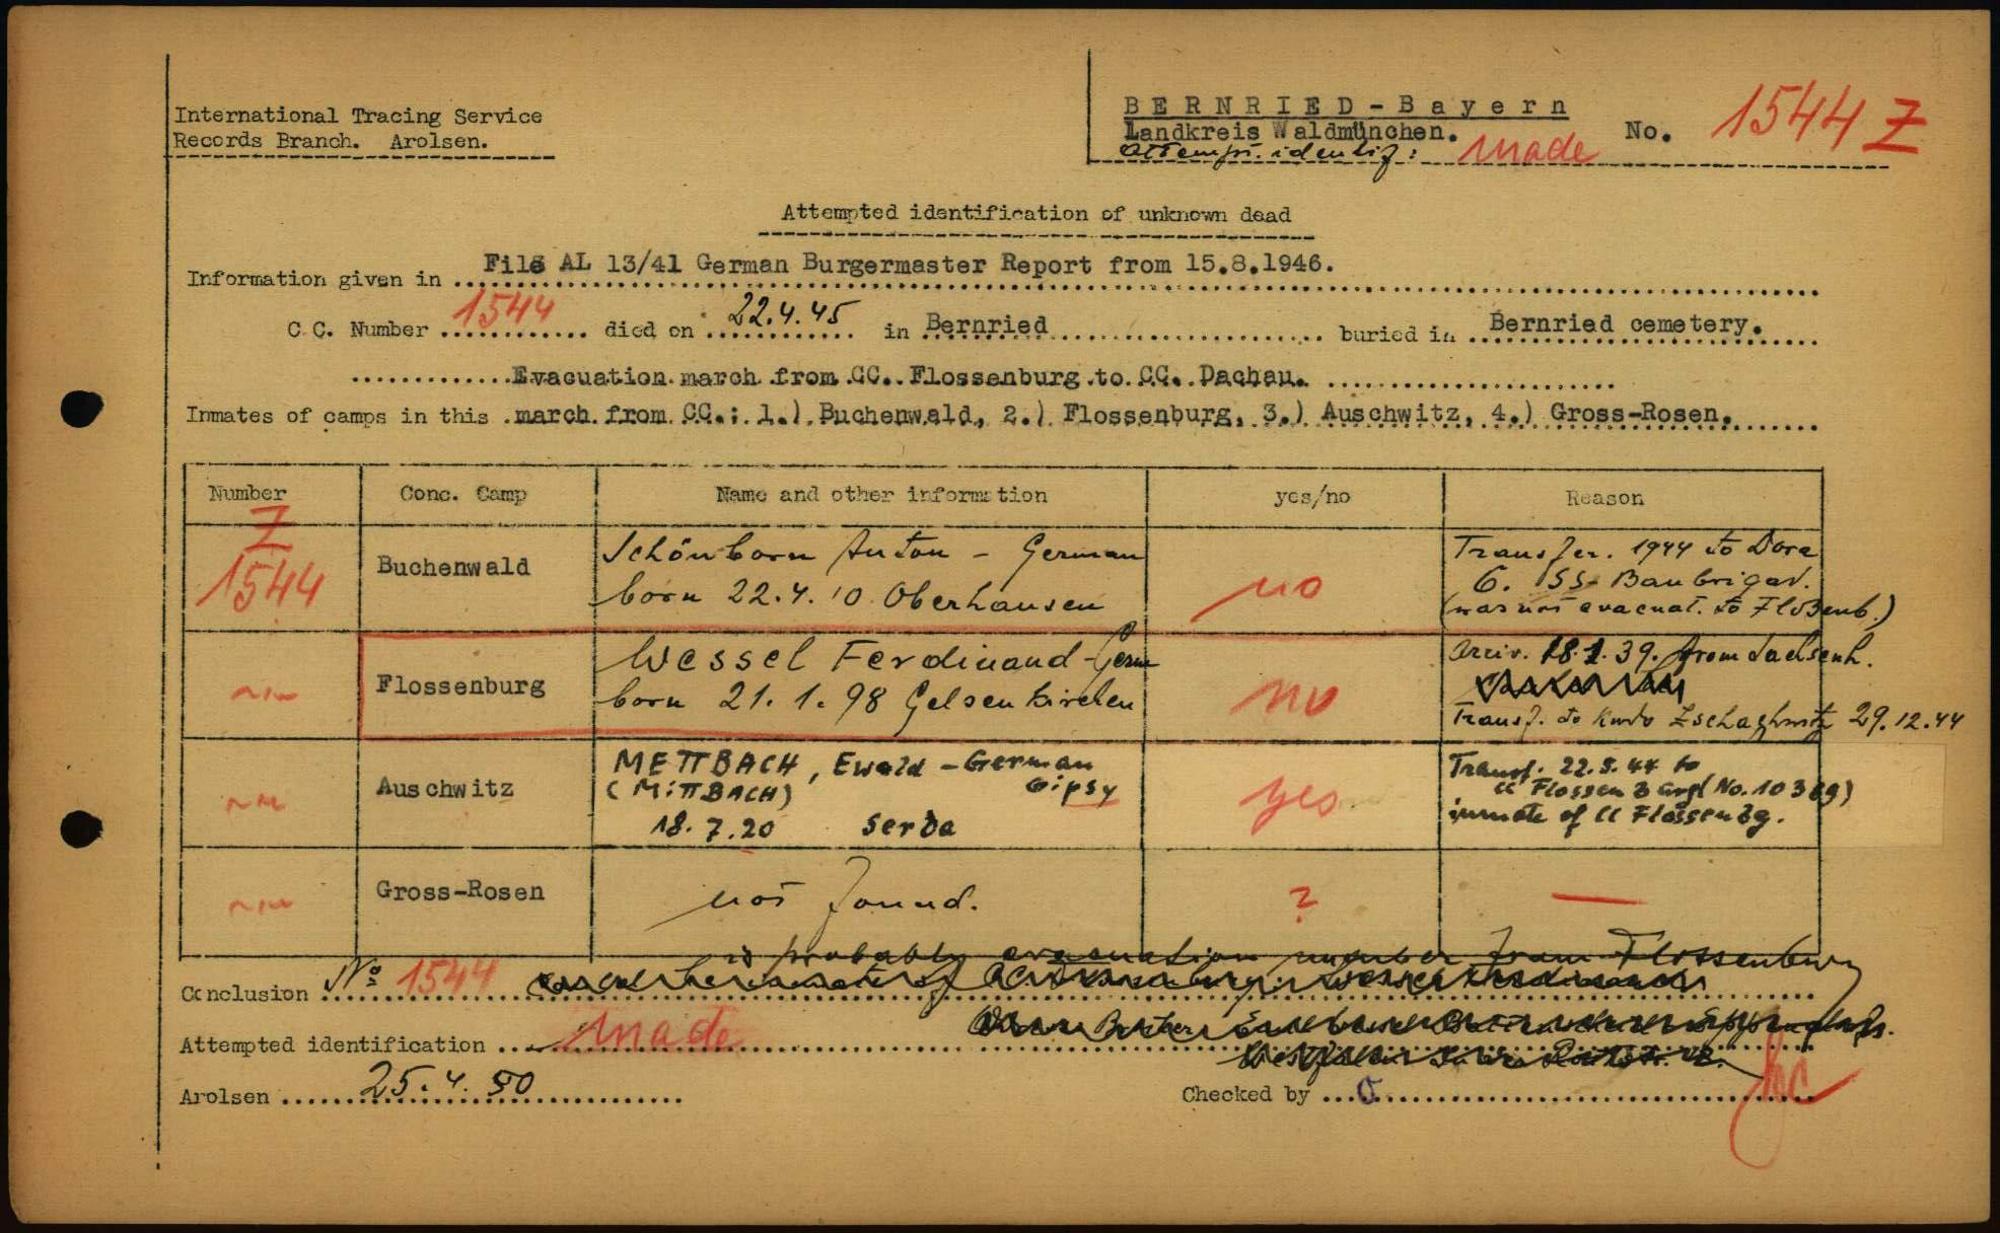 International Tracing Service
Records Branch. Arolsen.
BERNRIED-Bayern
Landkreis Waldmünchen.
Attempt. identif: made No. 1544 Z
Attempted identification of unknown dead
Information given in File AL 13/41 German Burgermaster Report from 15.8.1946.
C.C. Number 1544 died on 22.4.45 in Bernried buried in Bernried cemetery.
Evacuation march from CC. Flossenburg to CC. Dachau.
Inmates of camps in this march from CC.: 1.) Buchenwald, 2.) Flossenburg, 3.) Auschwitz, 4.) Gross-Rosen.
Number Conc. Camp Name and other information yes/no Reason
Z
1544
Buchenwald
Schönborn Anton - German
born 22.4.10 Oberhausen
no
Transfer. 1944 to Dora
6. SS-Baubrigad.
(was not evacuat. to Floßenb.)
Flossenburg
Wessel Ferdinand - Germ
born 21.1.98 Gelsenkirchen
no
arriv. 18.1.39. from Sachsenh.
Transf. to Kmdo 29.12.44
Auschwitz
METTBACH, Ewald - German
(MiTTBACH) Gipsy
18.7.20 Serba
yes
Transf. 22.5.44 to
CC Flossenbürg (No. 10389)
inmate of CC Flossenbg.
Gross-Rosen
not found.
?
—
is probably evacuation number from Flossenburg
Conclusion No 1544
Attempted identification made
Arolsen 25.4.50
Checked by